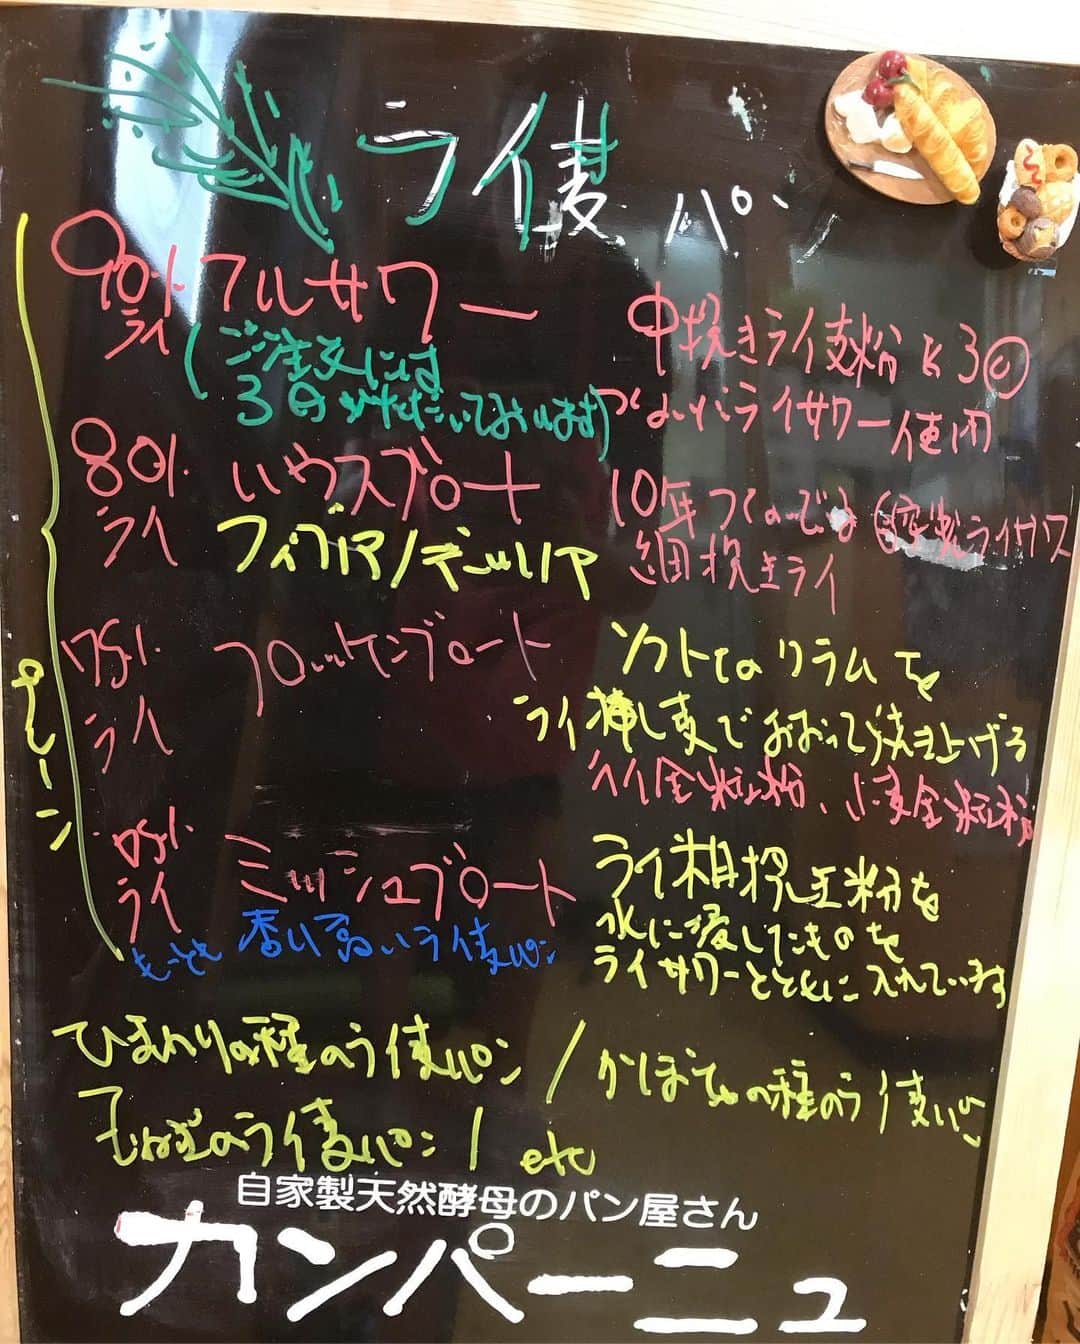 ライ麦パン
90%ライ フルサワー
(ご注文には
3日かけていただいております)
中挽きライ麦粉と3回
つないだライサワー使用
80%ライ ハウスブロート
10年つないでる自家製ライサワー
細挽きライ
75%ライ フロッケンブロート
ソフトなクラムを
ライ押し麦でおおって焼き上げる
ライ全粒粉、小麦全粒粉
75%ライ ミッシュブロート
もっとも香り高いライ麦パン
ライ粗挽き全粒粉を
水に浸したものを
ライサワーとともに入れています
プレーン
ひまわりの種のライ麦パン / かぼちゃの種のライ麦パン
のライ麦パン / etc
自家製天然酵母のパン屋さん
カンパーニュ